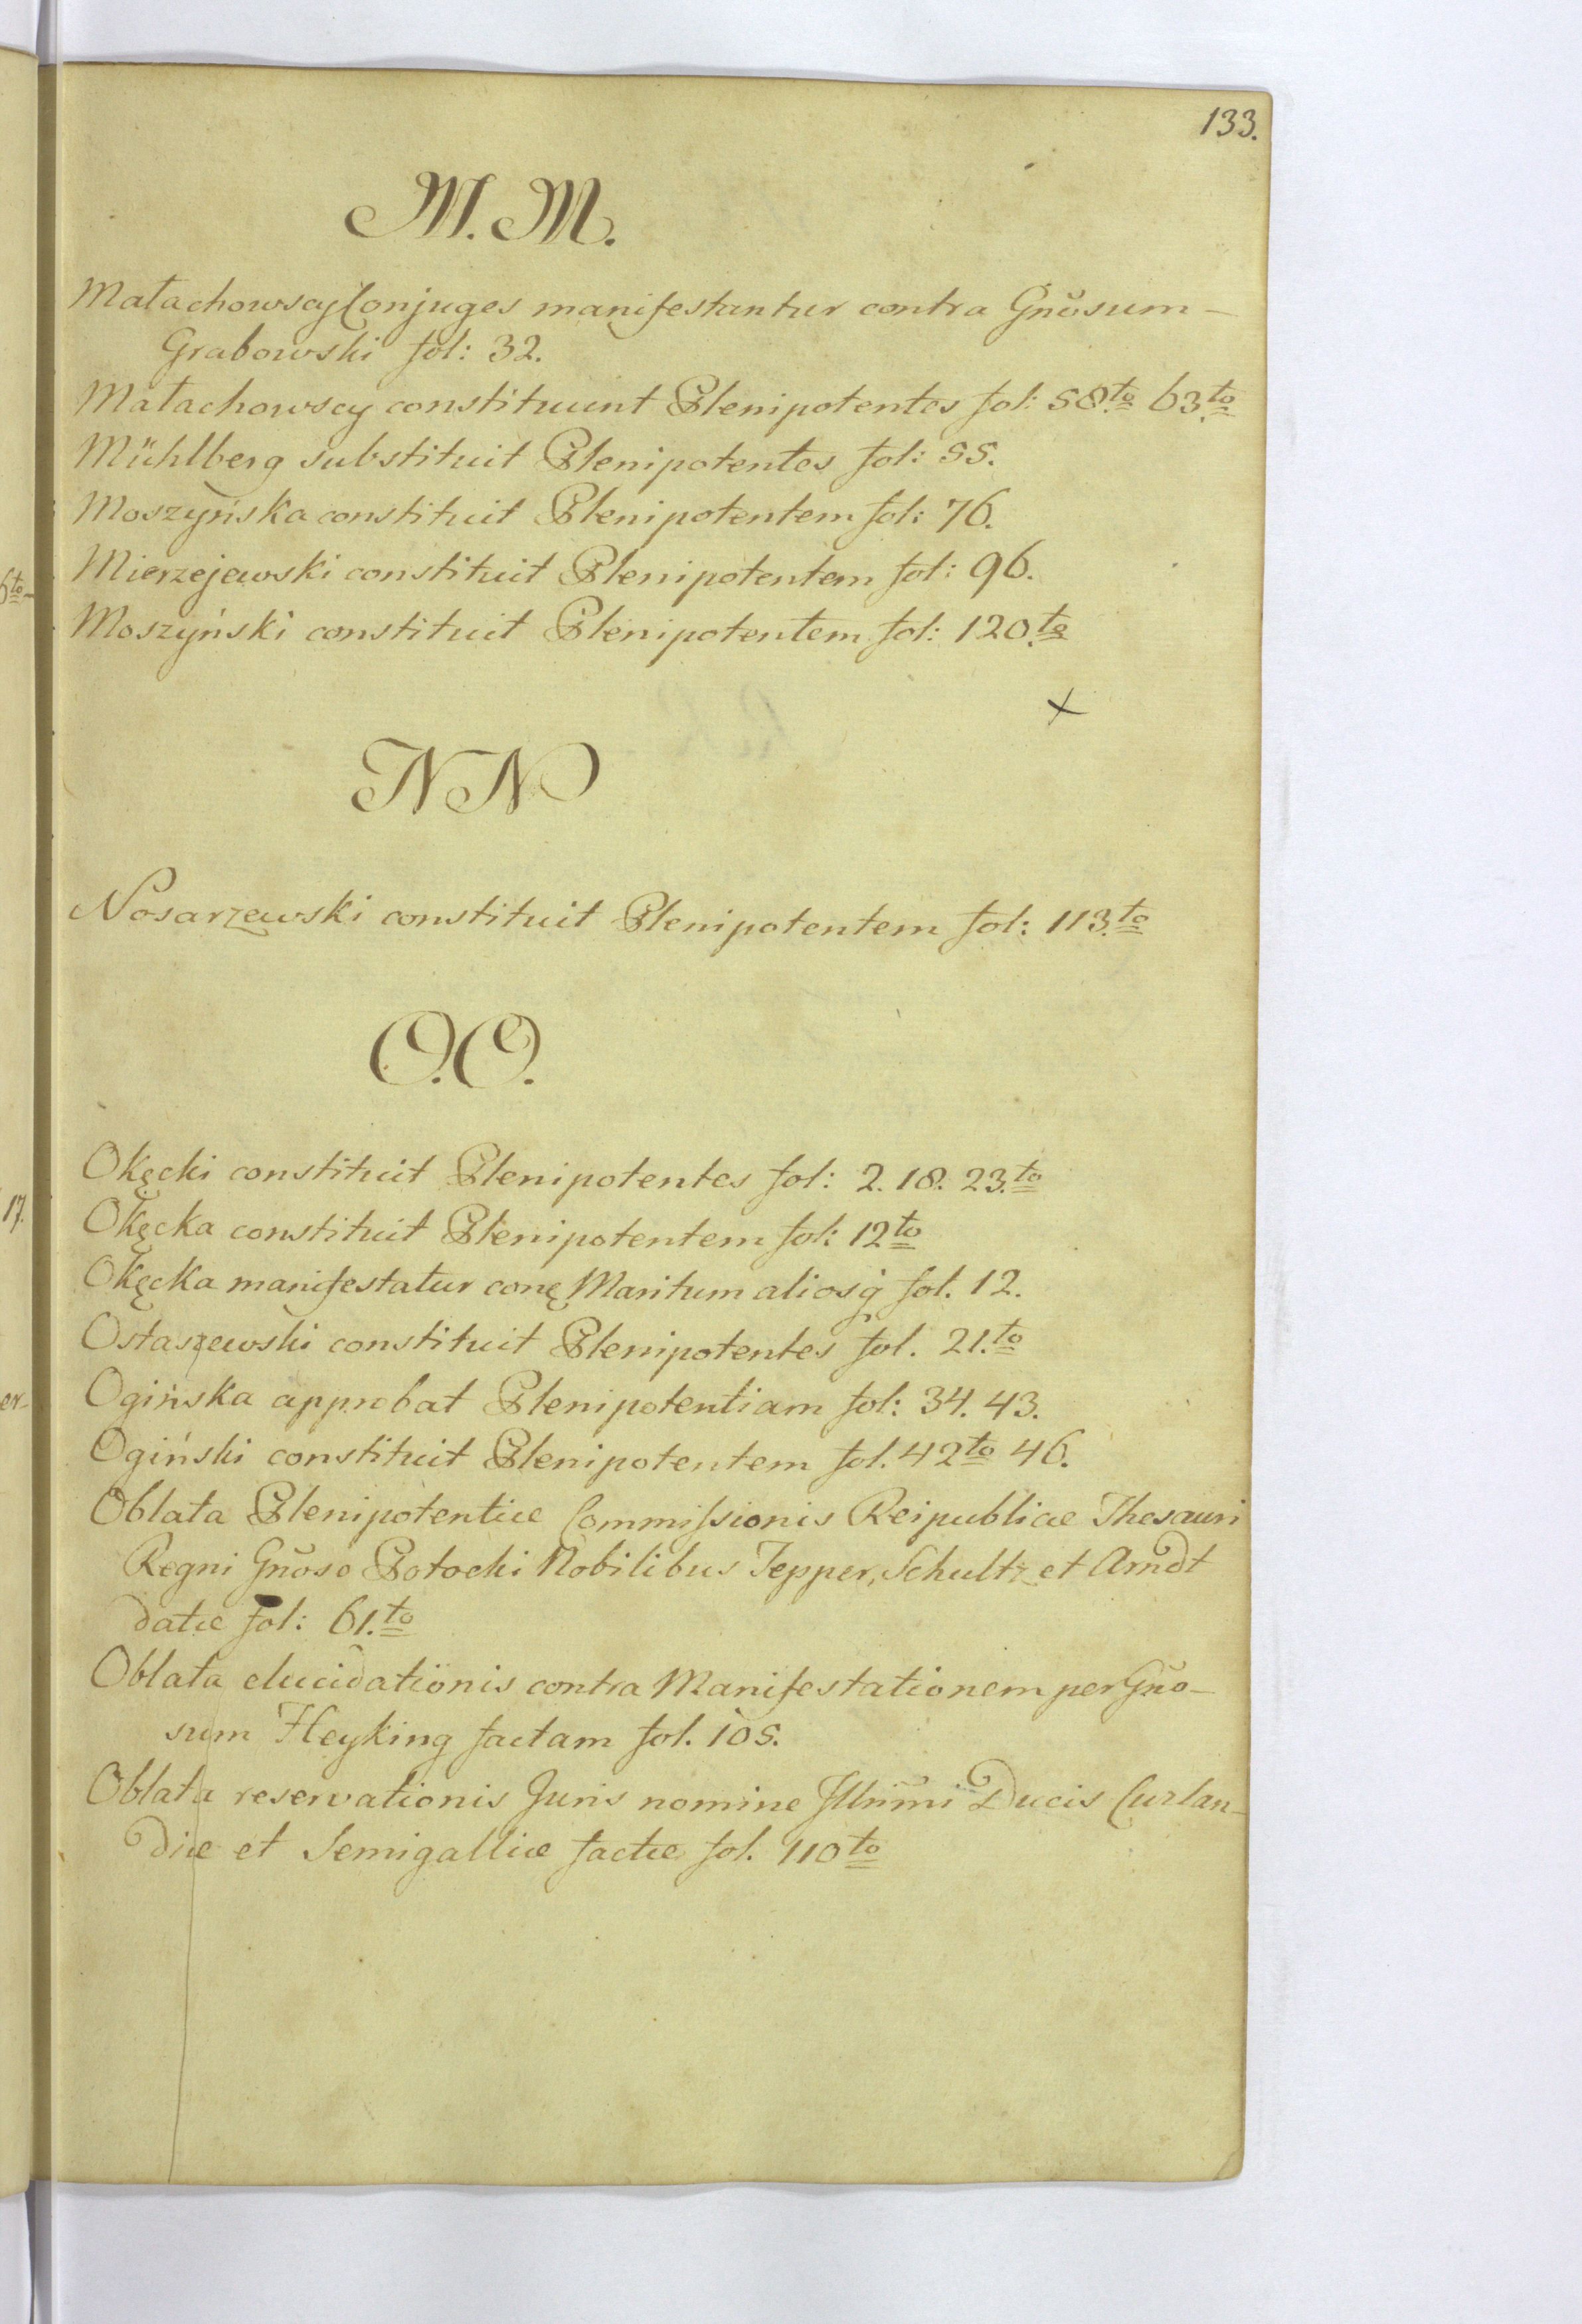 133.
M. M.
Małachowscy Conjuges manifestantur contra Gnõsum –
Grabowski fol: 32.
Małachowscy constituunt Plenipotentes fol: 58.to 63.to
Mühlberg substituit Plenipotentes fol: 55.
Moszyńska constituit Plenipotentem fol: 76.
Mierzejewski constituit Plenipotentem fol: 96.
6to
Moszyński constituit Plenipotentem fol: 120.to
x
N N
Nosarzewski constituit Plenipotentem fol: 113.to
O. O.
Okęcki constituit Plenipotentes fol: 2. 18. 23.to
17.
Okęcka constituit Plenipotentem fol: 12to
Okęcka manifestatur conę Maritum aliosq̇ fol. 12.
Ostaszewski constituit Plenipotentes fol. 21.to
er-
Ogińska approbat Plenipotentiam fol: 34. 43.
Ogiński constituit Plenipotentem fol. 42to 46.
Oblata Plenipotentiæ Commiſsionis Reipublicæ Thesauri
Regni Gnõso Potocki Nobilibus Tepper, Schultz et Arndt
datæ fol: 61.to
Oblata elucidationis contra Manifestationem per Gnõ-
sum Heyking factam fol. 105.
Oblata reservationis Juris nomine Illrimi Ducis Curlan-
diæ et Semigalliæ factæ fol. 110to